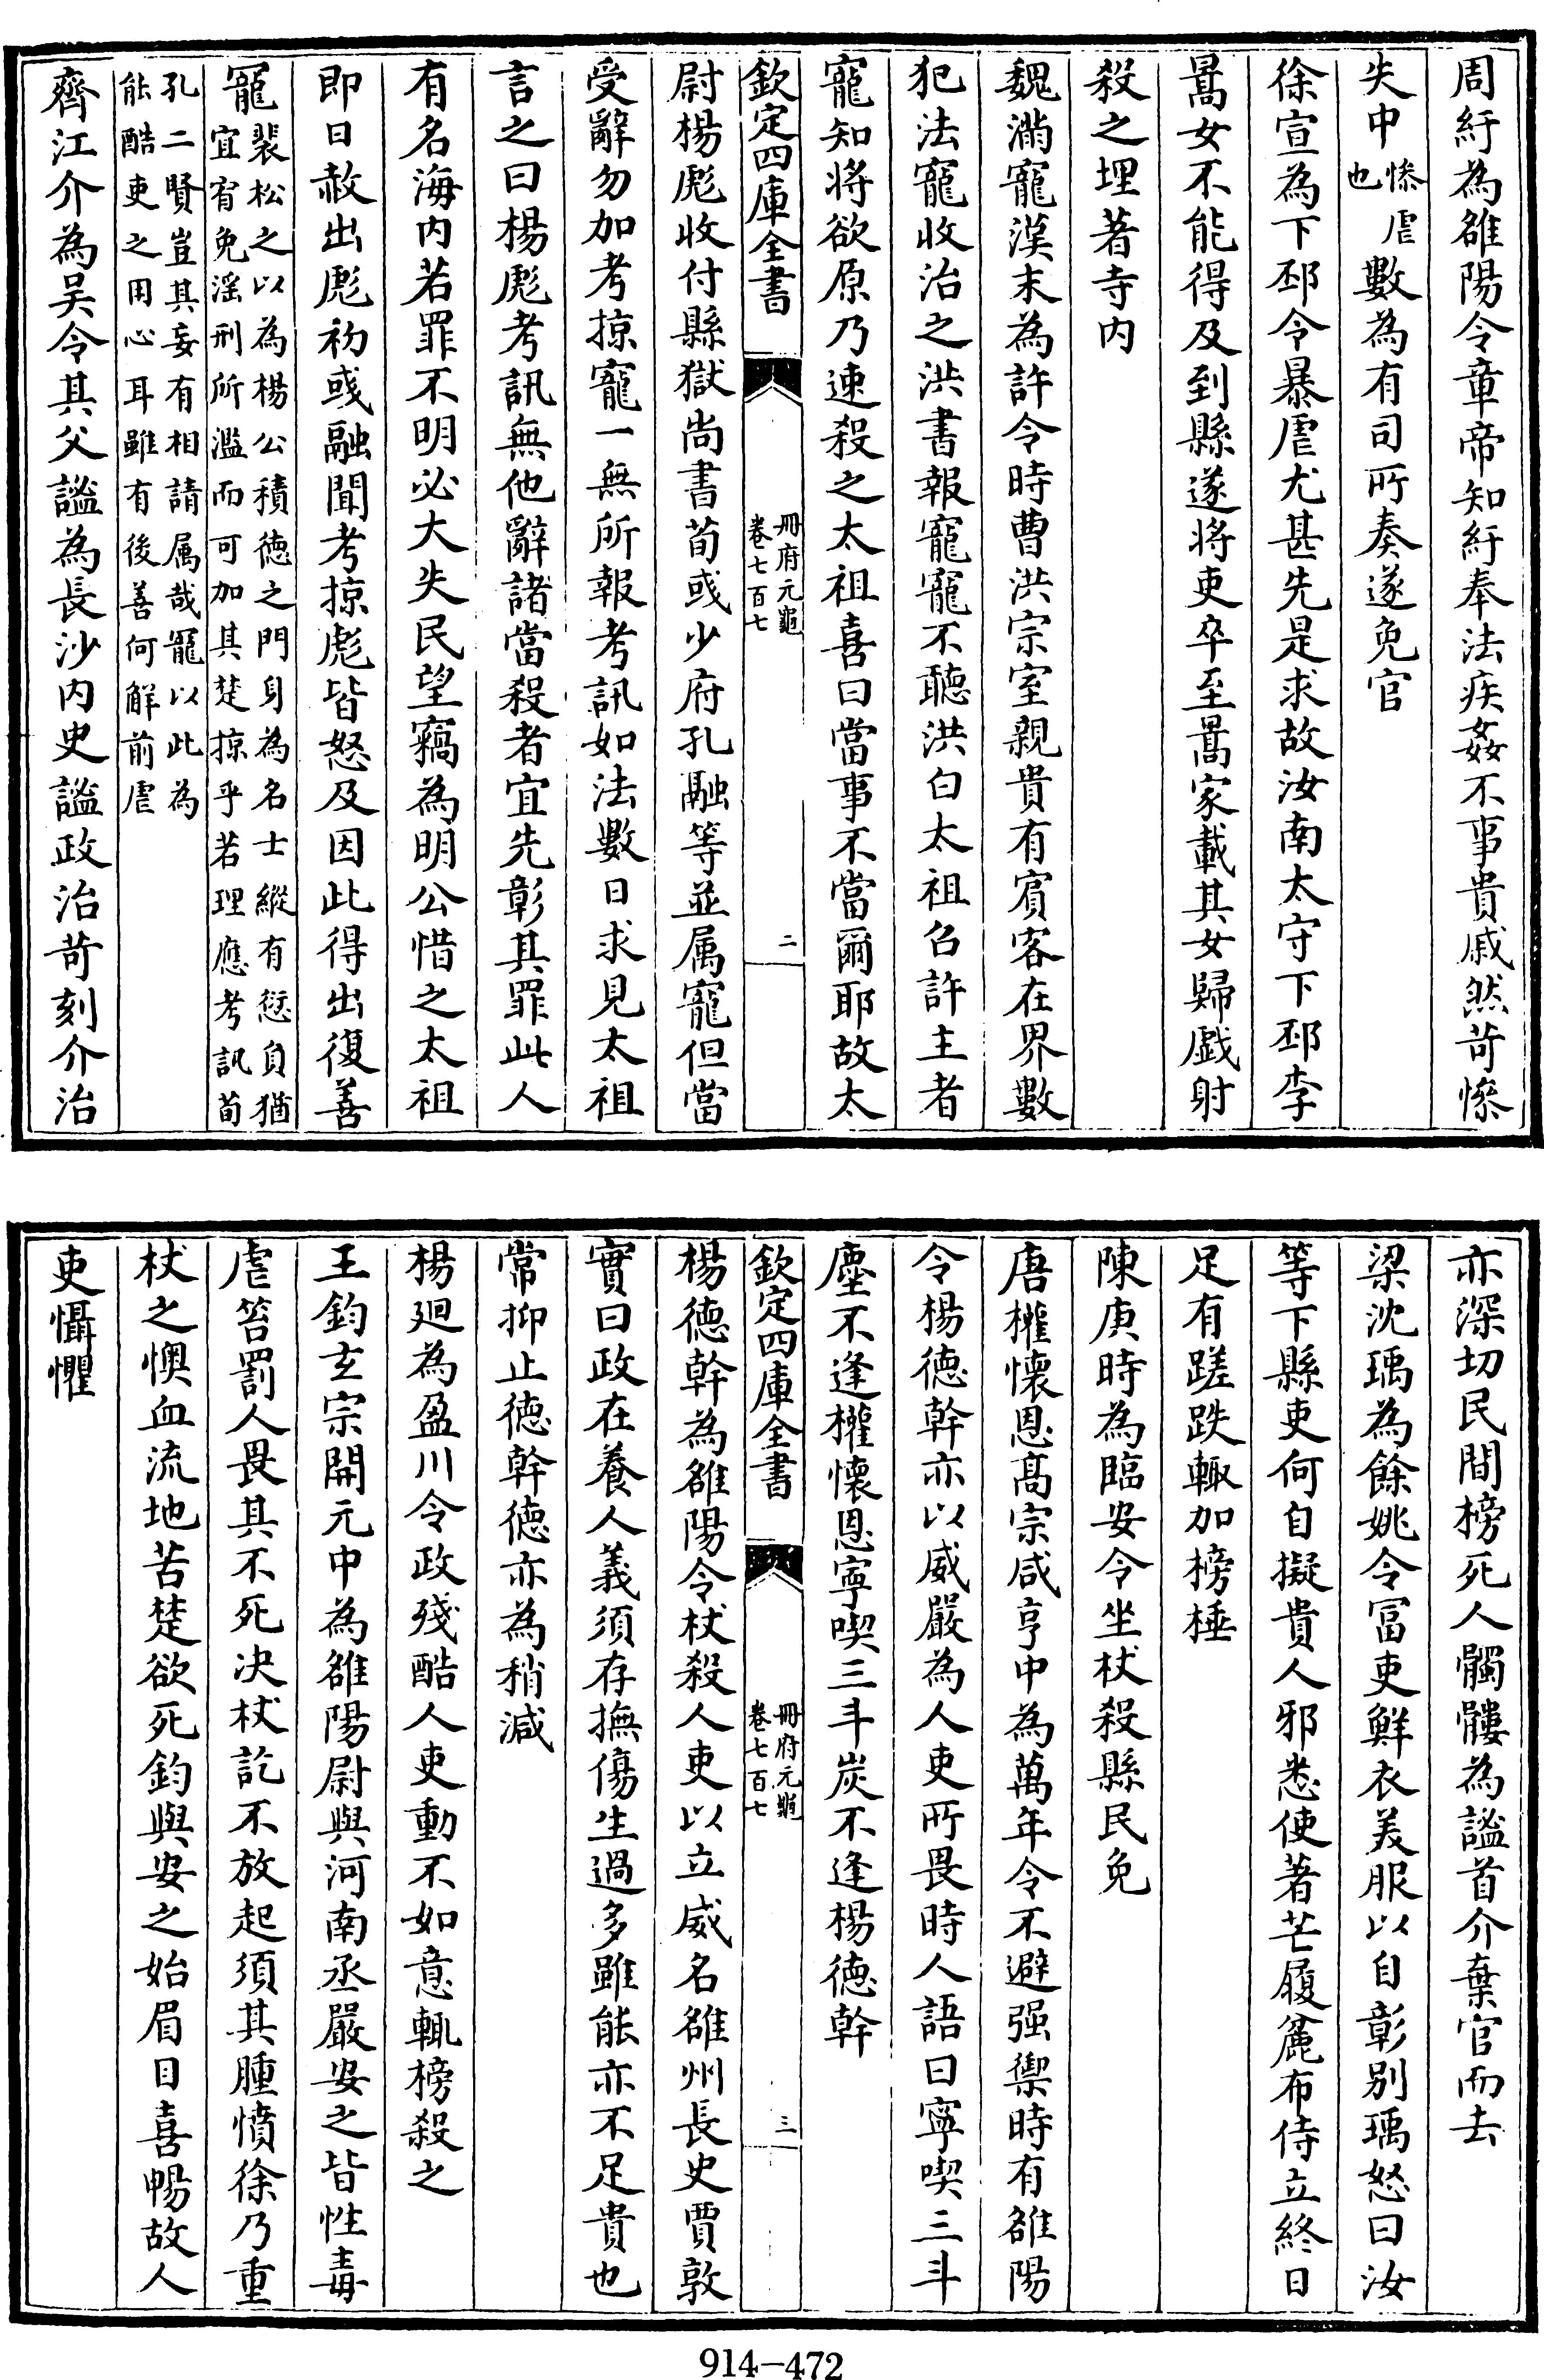 周紆為雒陽令章帝知紆奉法疾姦不事貴戚然苛慘
失中慘虐也數為有司所奏遂免官
徐宣為下邳令暴虐尤甚先是求故汝南太守下邳李
暠女不能得及到縣遂將吏卒至暠家載其女歸戯射
殺之埋著寺内
魏滿寵漢末為許令時曹洪宗室親貴有賔客在界數
犯法寵收治之洪書報寵寵不聽洪白太祖召許主者
寵知將欲原乃速殺之太祖喜曰當事不當爾耶故太
欽定四庫全書
冊府元龜
卷七百七
二
尉楊彪收付縣獄尚書荀彧少府孔融等並属寵但當
受辭勿加考掠寵一無所報考訊如法數日求見太祖
言之曰楊彪考訊無他辭諸當殺者宜先彰其罪此人
有名海内若罪不明必大失民望竊為明公惜之太祖
即日赦出彪初彧融聞考掠彪皆怒及因此得出復善
寵裴松之以為楊公積徳之門身為名士縱有愆負猶
宜宥免滛刑所濫而可加其楚掠乎若理應考訊荀
孔二賢豈其妄有相請属哉寵以此為
能酷吏之用心耳雖有後善何解前虐
齊江介為吳令其父謐為長沙内史謐政治苛刻介治
亦深切民間榜死人髑髏為謐首介棄官而去
梁沈瑀為餘姚令冨吏鮮衣美服以自彰别瑀怒曰汝
等下縣吏何自擬貴人邪悉使著芒履麄布侍立終日
足有蹉跌輙加榜棰
陳庚時為臨安令坐杖殺縣民免
唐權懷恩髙宗咸亨中為萬年令不避强禦時有雒陽
令楊徳幹亦以威嚴為人吏所畏時人語曰寧喫三斗
塵不逢權懷恩寧喫三斗炭不逢楊徳幹
欽定四庫全書
冊府元龜
卷七百七
三
楊徳幹為雒陽令杖殺人吏以立威名雒州長史賈敦
實曰政在養人義須存撫傷生過多雖能亦不足貴也
常抑止徳幹徳亦為稍減
楊廻為盈川令政殘酷人吏動不如意輙榜殺之
王鈞玄宗開元中為雒陽尉與河南丞嚴安之皆性毒
虐笞罰人畏其不死决杖訖不放起須其腫憤徐乃重
杖之懊血流地苦楚欲死鈞與安之始眉目喜暢故人
吏懾懼
914-472